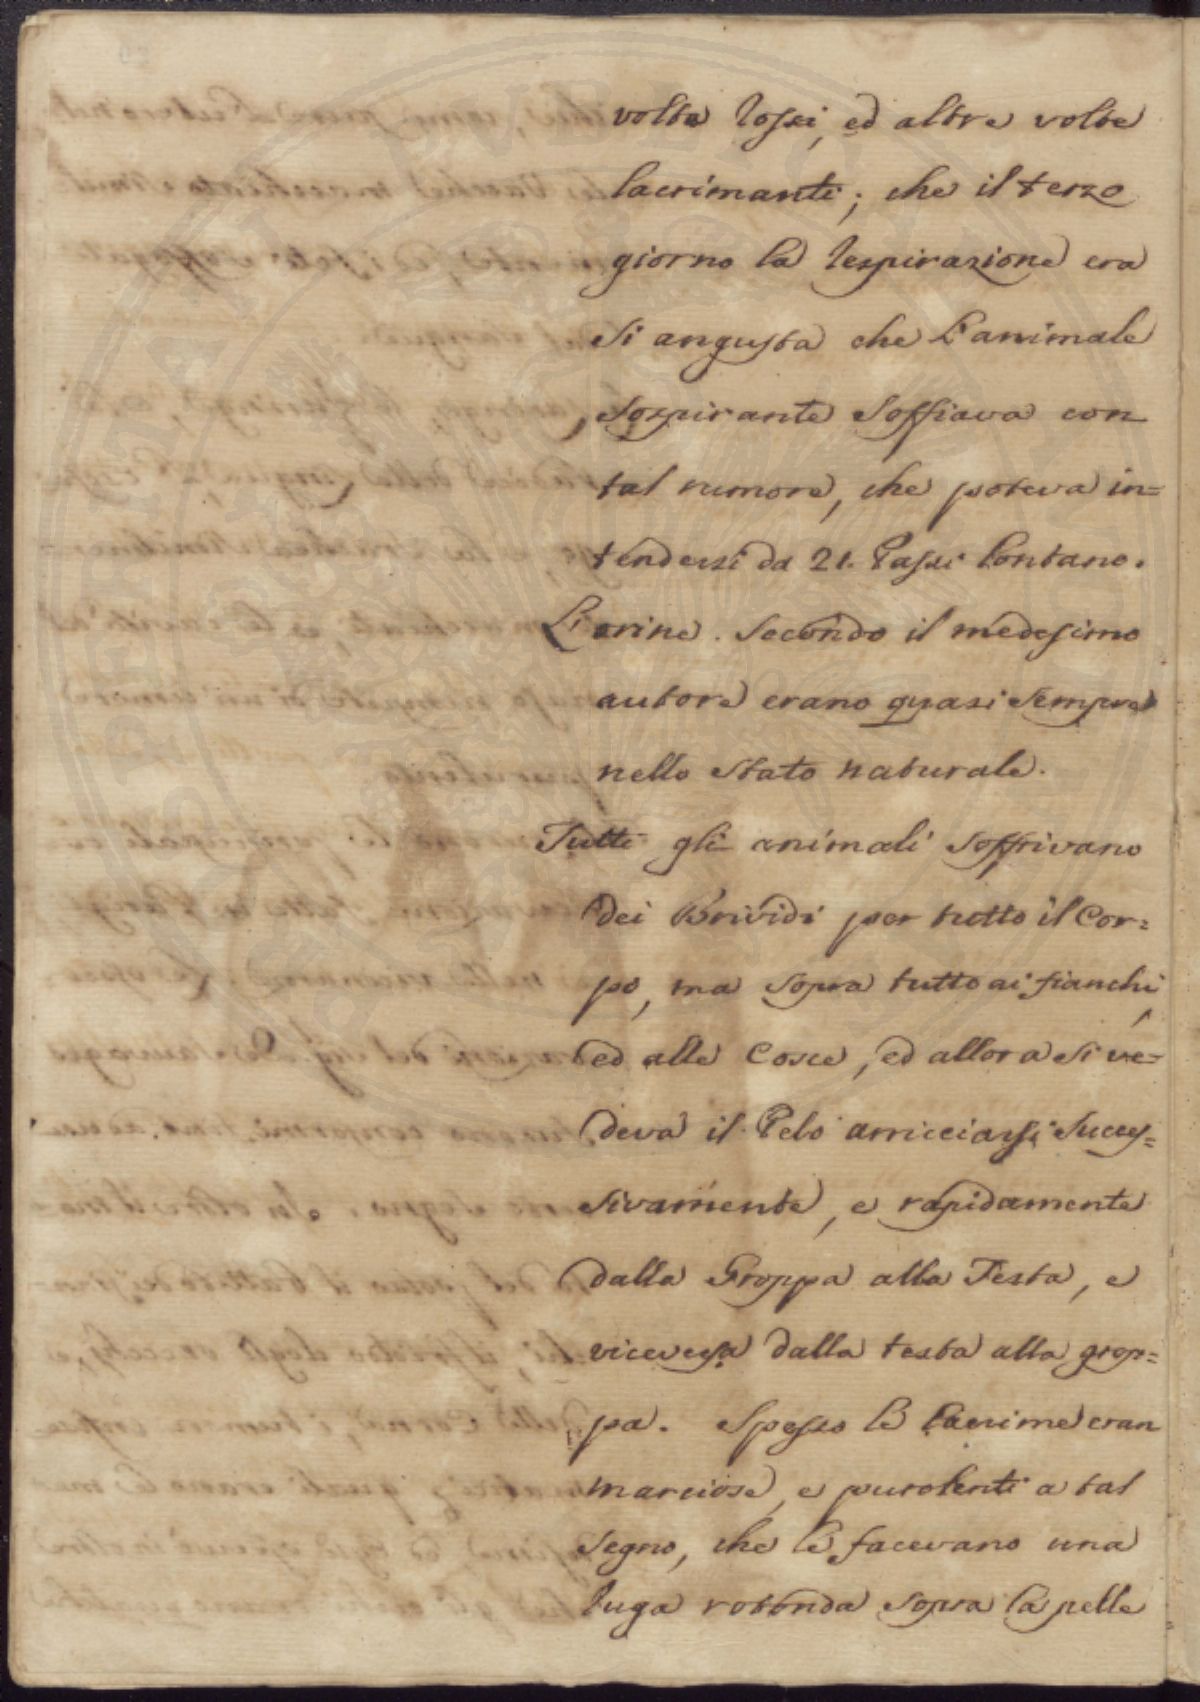 volta rossi, ed altre volte
lacrimanti; che il terzo
giorno la respirazione era
si angusta che l'animale
sospirante soffiava con
tal rumore, che poteva in=
tendersi da 21. Passi lontano.
L'orine. Secondo il medesimo
autore erano quasi sempre
nello stato naturale.
Tutti gli animali soffrivano
dei Brividi per tutto il Cor=
po, ma sopra tutto ai fianchi,
ed alle Cosce, ed allora si ve=
deva il Pelo arricciarsi succes=
sivamente, e rapidamente
dalla Groppa alla Testa, e
viceversa dalla testa alla grop=
pa. Spesso le lacrime eran
marciose, e purolenti a tal
segno, che le facevano una
ruga rotonda sopra la pelle